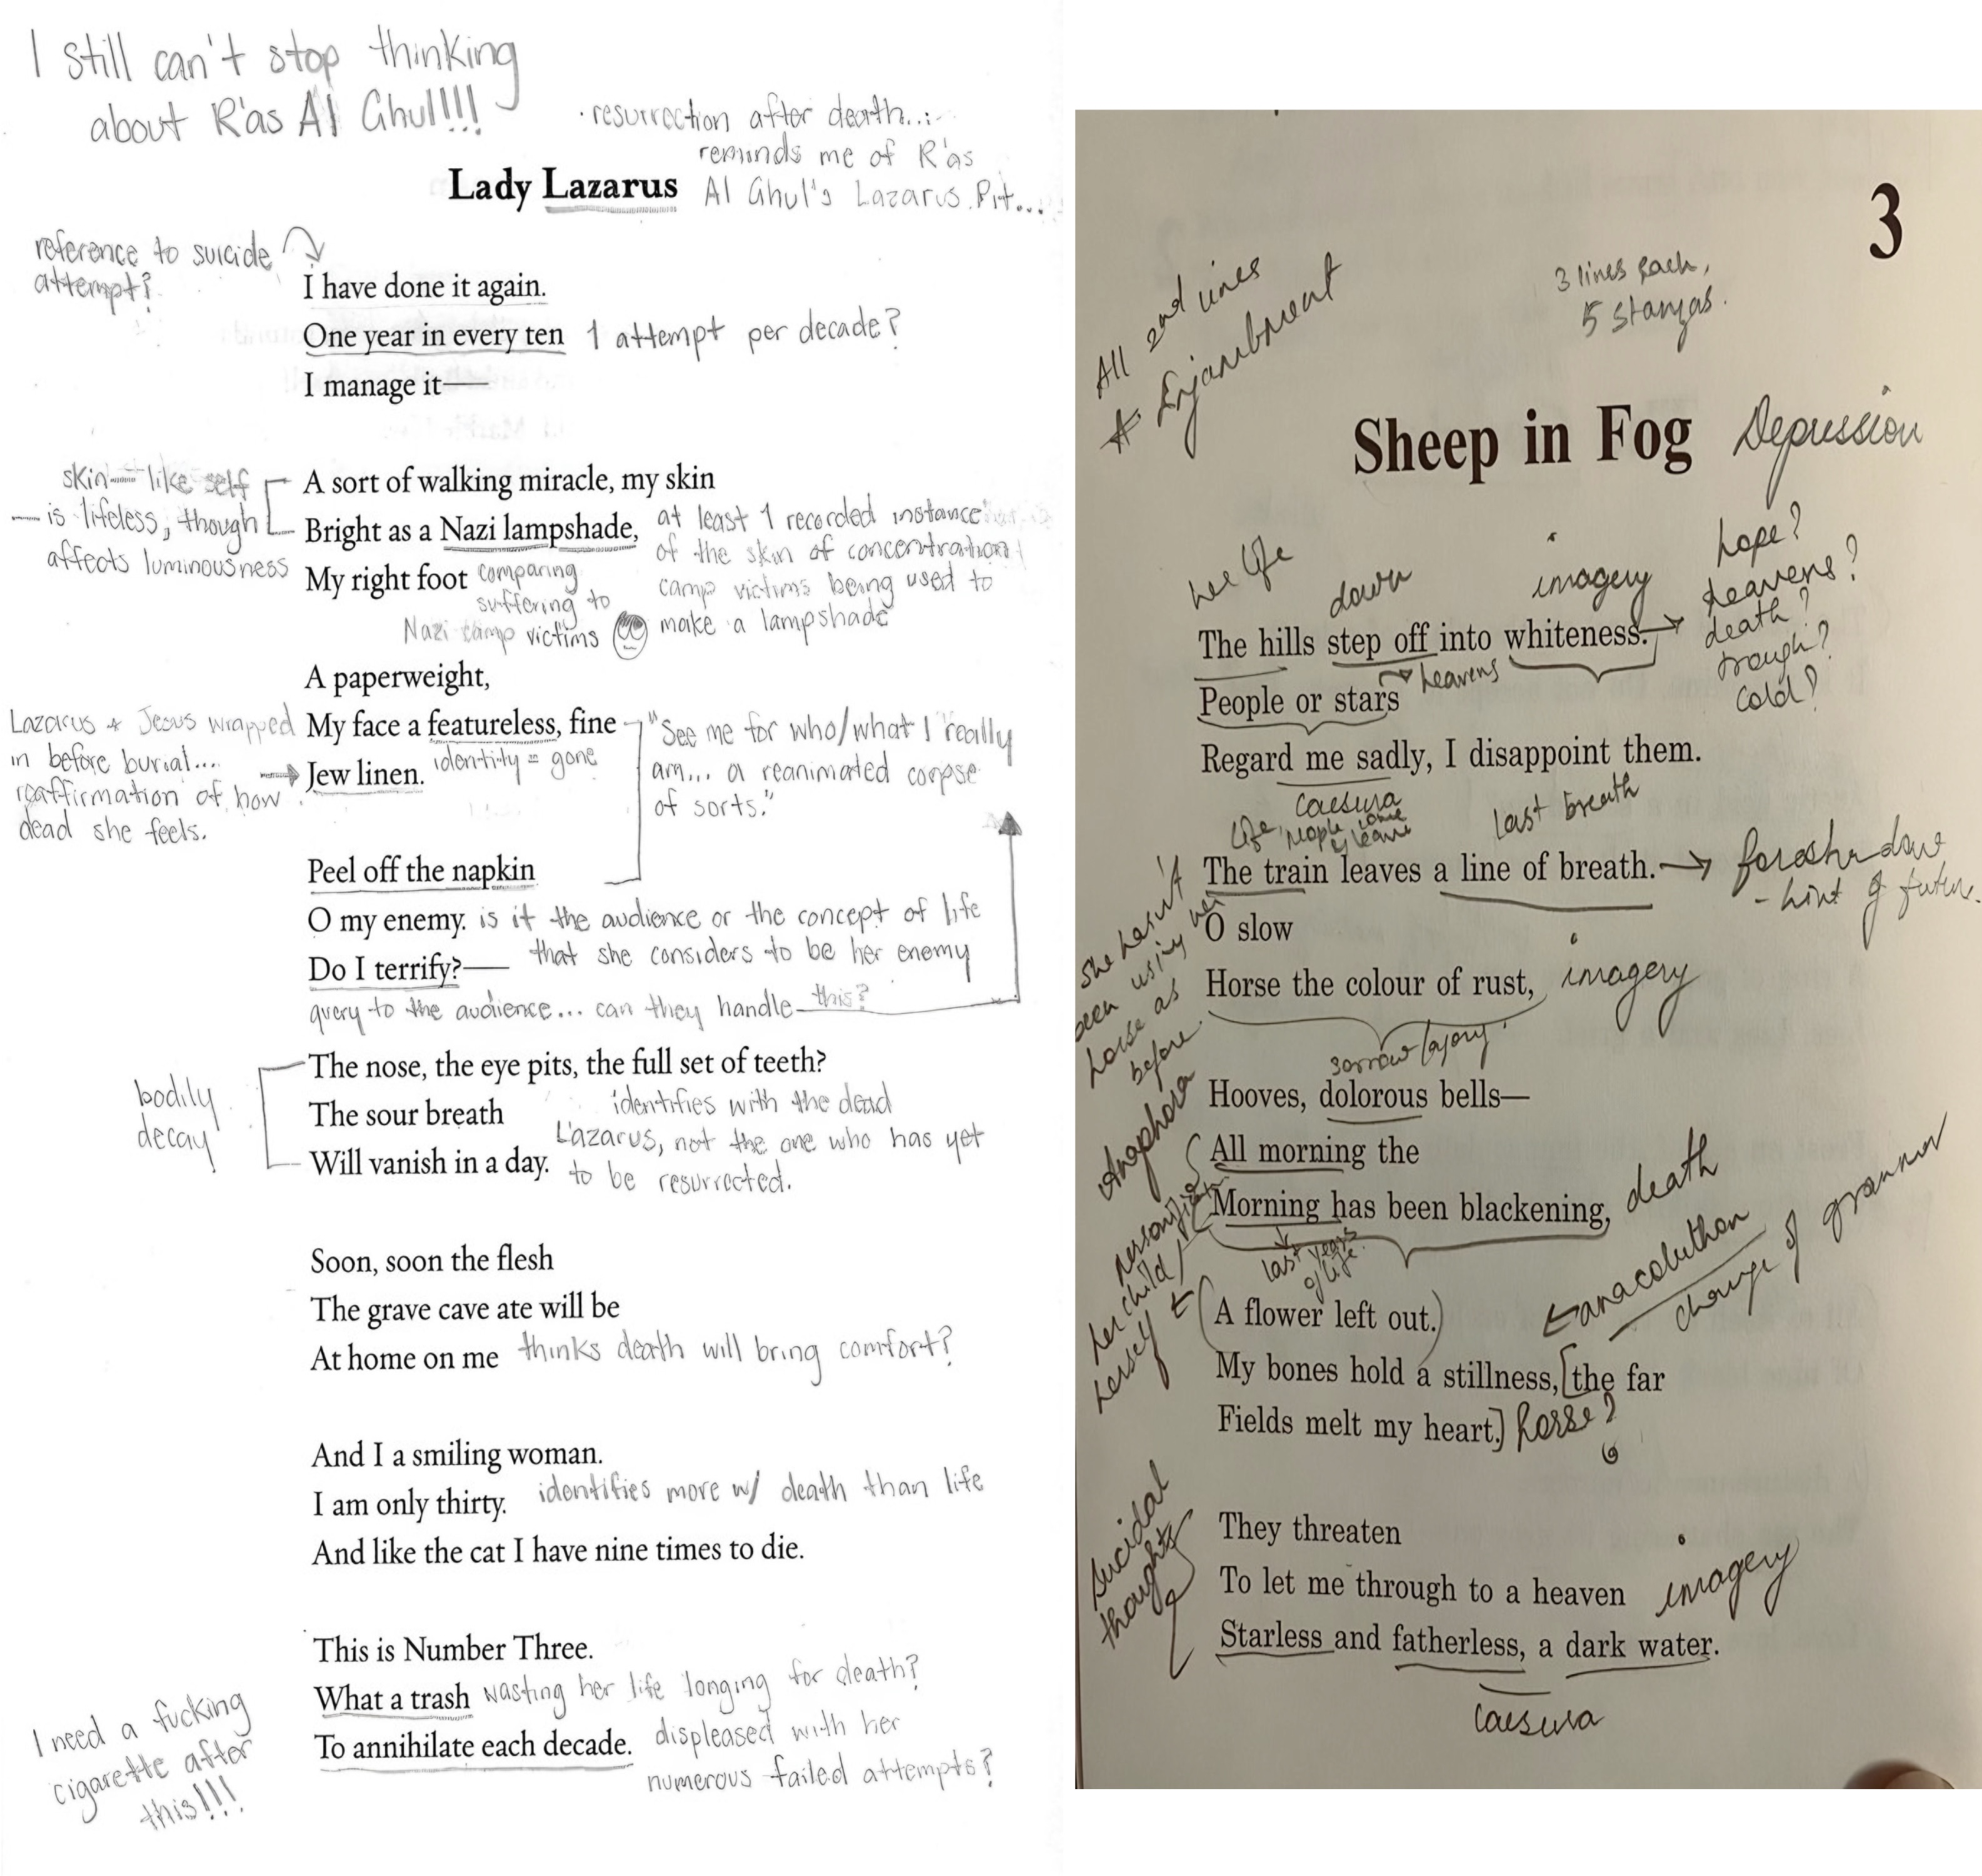 I still can't stop thinking
about R'as Al Ghul!!!
· resurrection after death...
reminds me of R'as
Lady Lazarus Al Ghul's Lazarus Pit...
reference to suicide
attempt?
I have done it again.
One year in every ten 1 attempt per decade?
I manage it——
skin — like self
— is lifeless, though
affects luminousness
A sort of walking miracle, my skin
Bright as a Nazi lampshade,
My right foot
at least 1 recorded instance
of the skin of concentration
camp victims being used to
make a lampshade
comparing
suffering to
Nazi camp victims
A paperweight,
My face a featureless, fine
Jew linen.
identity = gone
Lazarus + Jesus wrapped
in before burial...
reaffirmation of how
dead she feels.
"See me for who/what I really
am... a reanimated corpse
of sorts."
Peel off the napkin
O my enemy. is it the audience or the concept of life
Do I terrify?—— that she considers to be her enemy
query to the audience... can they handle this?
bodily
decay
The nose, the eye pits, the full set of teeth?
The sour breath
Will vanish in a day.
identifies with the dead
Lazarus, not the one who has yet
to be resurrected.
Soon, soon the flesh
The grave cave ate will be
At home on me thinks death will bring comfort?
And I a smiling woman.
I am only thirty. identifies more w/ death than life
And like the cat I have nine times to die.
This is Number Three.
What a trash wasting her life longing for death?
To annihilate each decade. displeased with her
numerous failed attempts?
I need a fucking
cigarette after
this!!!
3
All 2nd lines
Enjambment
3 lines each,
5 stanzas.
Sheep in Fog Depression
her life
down
imagery
hope?
heavens?
death?
trough?
cold?
The hills step off into whiteness.
People or stars
heavens
Regard me sadly, I disappoint them.
caesura
life, people come
& leave
last breath
The train leaves a line of breath. → foreshadow
- hint of future.
O slow
Horse the colour of rust, imagery
she hasn't
been using her
horse as
before.
sorrow/agony
Hooves, dolorous bells—
Anaphora
All morning the
Morning has been blackening, death
last years
of life
her child/
herself
A flower left out.
anacoluthon
change of grammar
My bones hold a stillness, [the far
Fields melt my heart.] horse?
suicidal
thoughts
They threaten
To let me through to a heaven imagery
Starless and fatherless, a dark water.
caesura